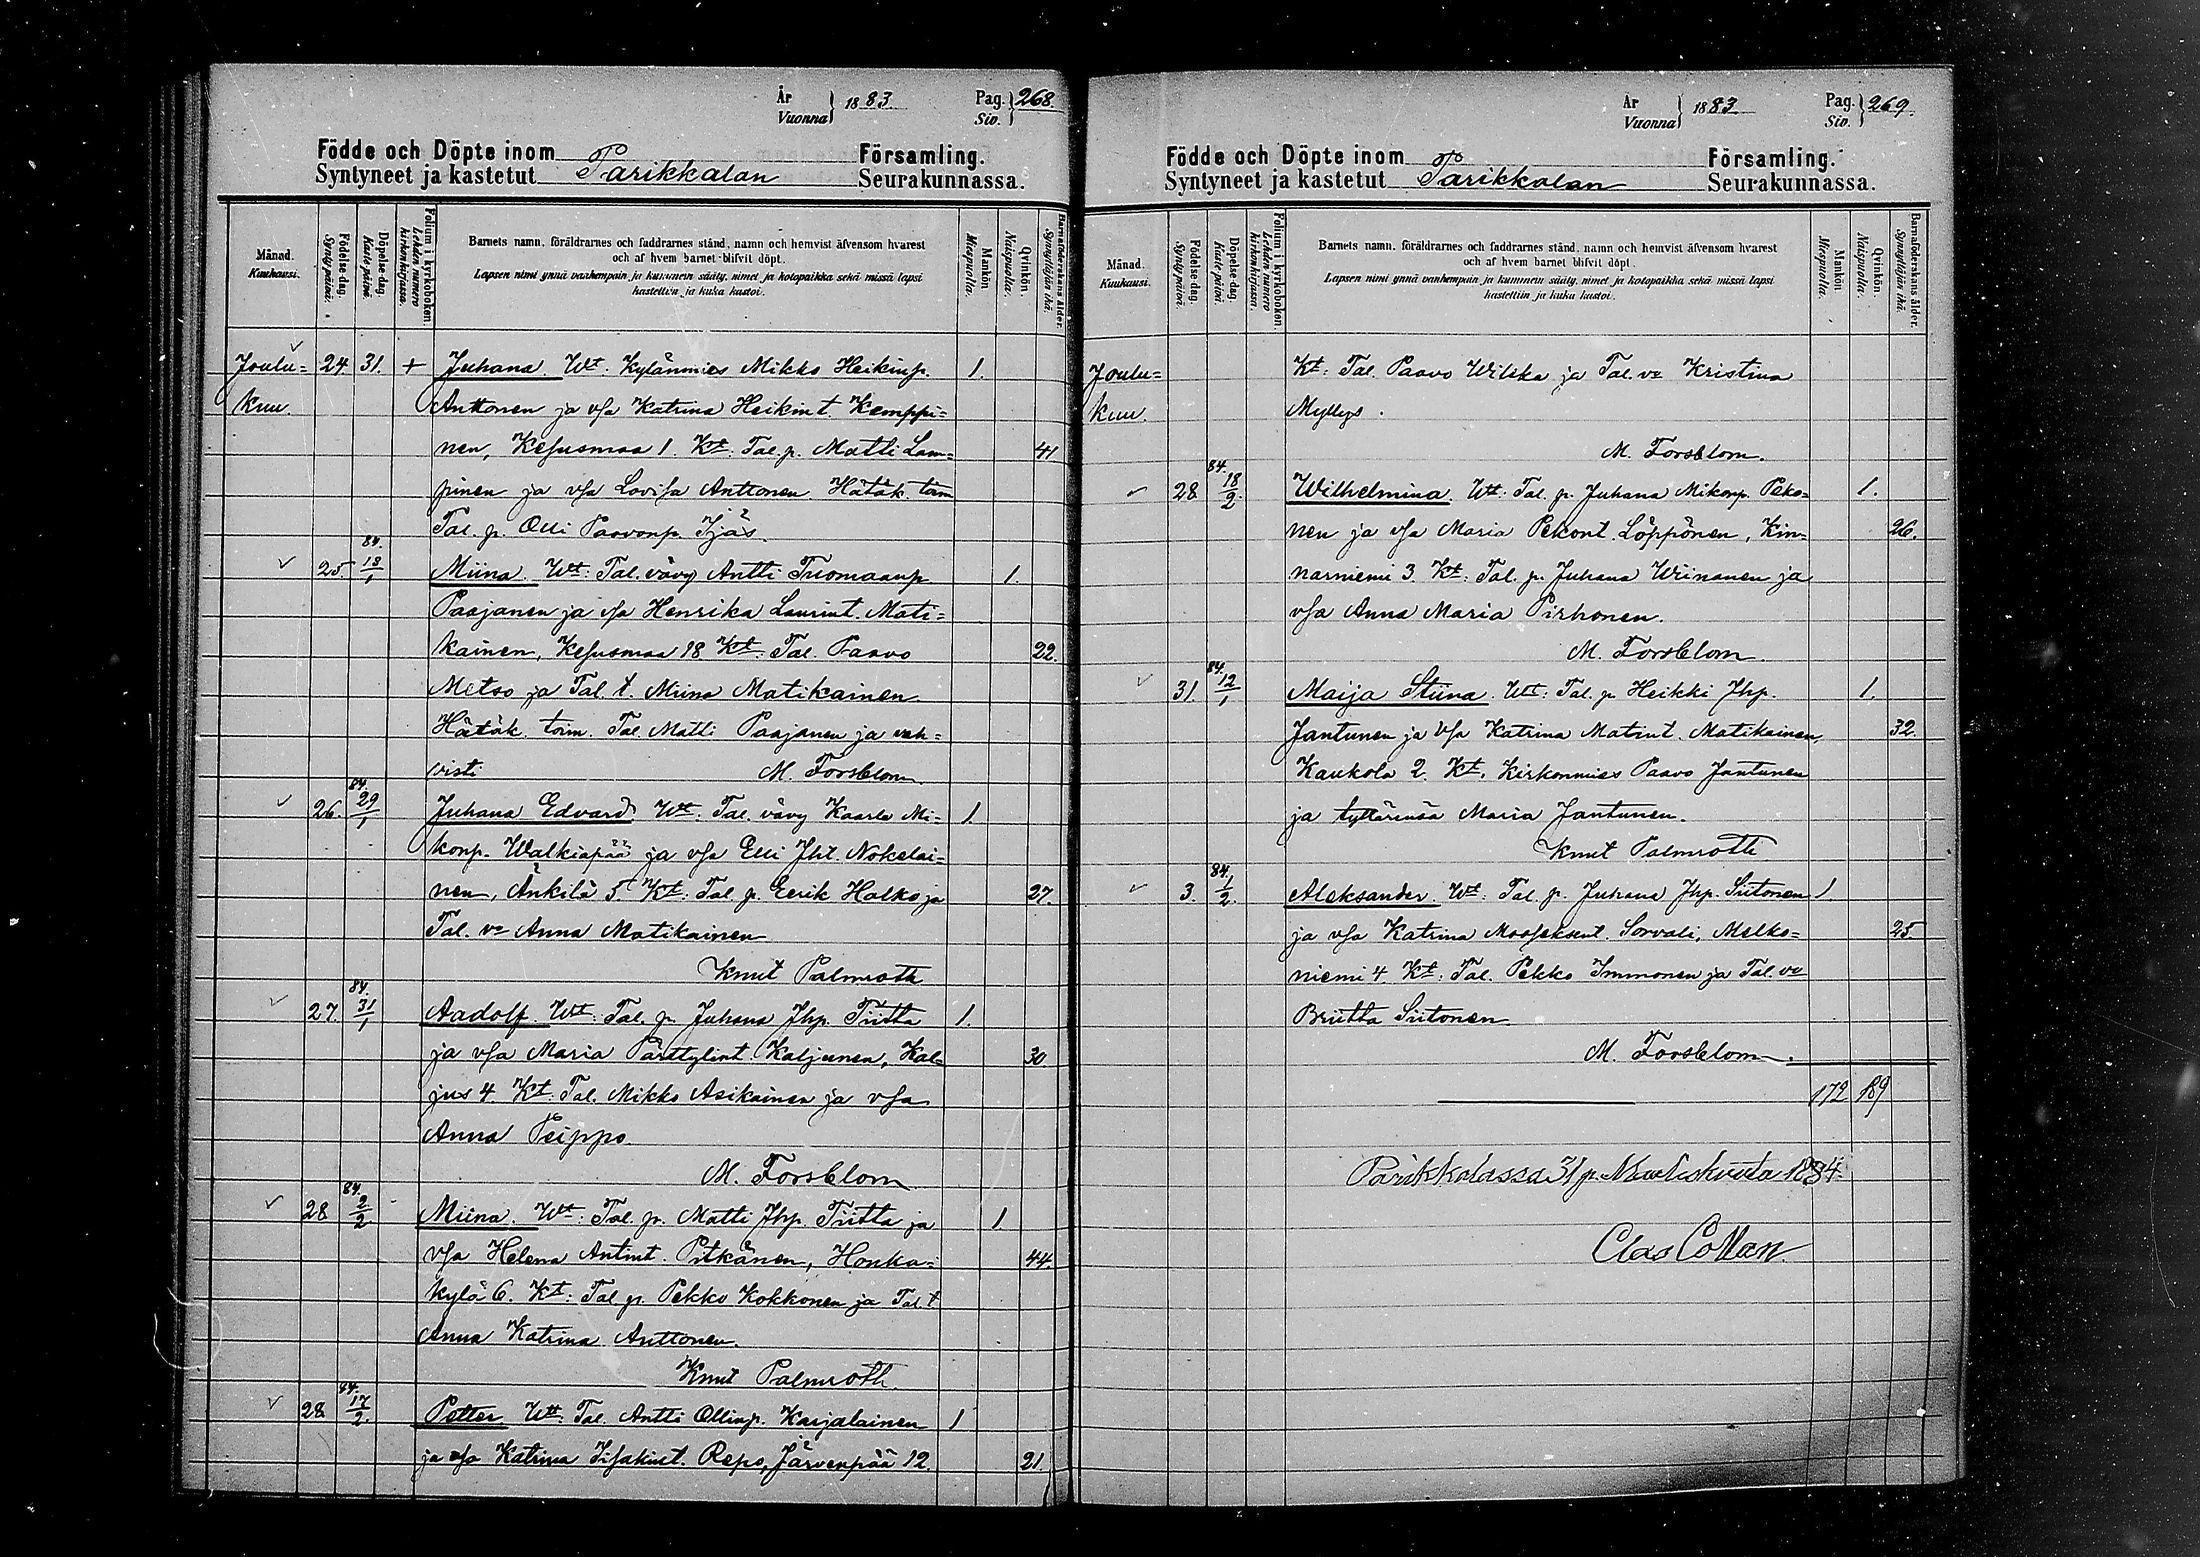 År Vuonna } 1883. Pag. Siv. } 268.
Födde och Döpte inom Församling.
Syntyneet ja kastetut Parikkalan Seurakunnassa.
Månad. Kuukausi.
Födelse-dag. Syntypäivä.
Döpelse-dag. Kastepäivä.
Folium i kyrkoboken. Lehden numero kirkonkirjassa.
Barnets namn, föräldrarnes och faddrarnes stånd, namn och hemvist äfvensom hvarest
och af hvem barnet blifvit döpt.
Lapsen nimi ynnä vanhempain ja kummein sääty, nimet ja kotopaikka sekä missä lapsi
kastettiin ja kuka kastoi.
Mankön Miespuolia.
Qvinkön. Naispuolia.
Barnaföderskans ålder. Synnyttäjän ikä.
Joulu= 24 31. + Juhana. Wt. Kylänmies Mikko Heikinp. 1.
kuu. Anttonen ja vsa Katrina Heikint. Kemppi=
nen, Kesusmaa 1. Kt: Tal. p. Matti Lam= 41
pinen ja vsa Lovisa Anttonen Hätäk. toim
Tal. p. Olli Paavonp. Ijäs.
25. 84. 13/1 Miina. Wt: Tal. vävy Antti Tuomaanp 1.
Paajanen ja vsa Henrika Laurint. Mati=
kainen, Kesusmaa 18 Kt: Tal. Paavo 22.
Metso ja Tal. t. Miina Matikainen.
Hätäk. toim. Tal. Matti Paajanen ja vah=
visti M. Forsblom
26. 84. 29/1 Juhana Edvard. Wt. Tal. vävy Kaarle Mi= 1.
konp. Walkiapää ja vsa Elli Jht. Nokelai=
nen, Änkilä 5. Kt: Tal. p. Eerik Halko ja 27.
Tal. vo Anna Matikainen
Knut Palmroth
27. 84. 31/1 Aadolf. Wt: Tal. p. Juhana Jhp. Tiitta 1.
ja vsa Maria Pärttylint. Kaljunen, Kal= 30.
jus 4. Kt: Tal. Mikko Asikainen ja vsa
Anna Peippo.
M. Forsblom
28 84. 2/2 Miina. Wt: Tal. p. Matti Jhp. Tiitta ja 1
vsa Helena Antint. Pitkänen, Honka= 44.
kylä 6. Kt: Tal p. Pekko Kokkonen ja Tal. t
Anna Katrina Anttonen.
Knut Palmroth.
28 84. 17/2. Petter. Wt. Tal. Antti Ollinp. Karjalainen 1
ja vsa Katrina Iisakint. Repo, Järvenpää 12. 21.
År Vuonna } 1883 Pag. Siv. } 269.
Födde och Döpte inom Församling.
Syntyneet ja kastetut Parikkalan Seurakunnassa.
Månad. Kuukausi.
Födelse-dag. Syntypäivä.
Döpelse-dag. Kastepäivä.
Folium i kyrkoboken. Lehden numero kirkonkirjassa.
Barnets namn, föräldrarnes och faddrarnes stånd, namn och hemvist äfvensom hvarest
och af hvem barnet blifvit döpt.
Lapsen nimi ynnä vanhempain ja kummein sääty, nimet ja kotopaikka sekä missä lapsi
kastettiin ja kuka kastoi.
Mankön Miespuolia.
Qvinkön. Naispuolia.
Barnaföderskans ålder. Synnyttäjän ikä.
Joulu= Kt: Tal. Paavo Wilska ja Tal. vo Kristina
kuu. Myllys.
M. Forsblom.
28 84. 18/2. Wilhelmina. Wt: Tal. p. Juhana Mikonp. Peko= 1.
nen ja vsa Maria Pekont. Löppönen, Kin= 26.
narniemi 3. Kt: Tal. p. Juhana Wiinanen ja
vsa Anna Maria Pirhonen.
M. Forsblom.
31. 84. 12/1 Maija Stiina. Wt: Tal. p. Heikki Jhp. 1.
Jantunen ja vsa Katrina Matint. Matikainen, 32.
Kaukola 2. Kt. Kirkonmies Paavo Jantunen
ja tyttärensä Maria Jantunen.
Knut Palmroth
3. 84. 1/2. Aleksander. Wt: Tal. p. Juhana Jhp. Siitonen 1
ja vsa Katrina Mooseksent. Sorvali, Melko= 25.
niemi 4 Kt: Tal. Pekko Immonen ja Tal. vo
Briitta Siitonen.
M. Forsblom.
172 189
Parikkalassa 31 p. Maaliskuuta 1884.
Clas Collan.